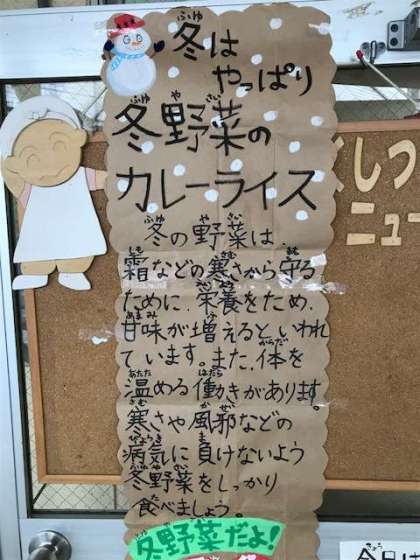 冬は
やっぱり
冬野菜の
カレーライス
冬の野菜は
霜などの寒さから守る
ために、栄養をため、
甘味が増えるといわれ
ています。また、体を
温める働きがあります。
寒さや風邪などの
病気に負けないよう
冬野菜をしっかり
食べましょう。
冬野菜だよ!
しつ
ニュー
今日は